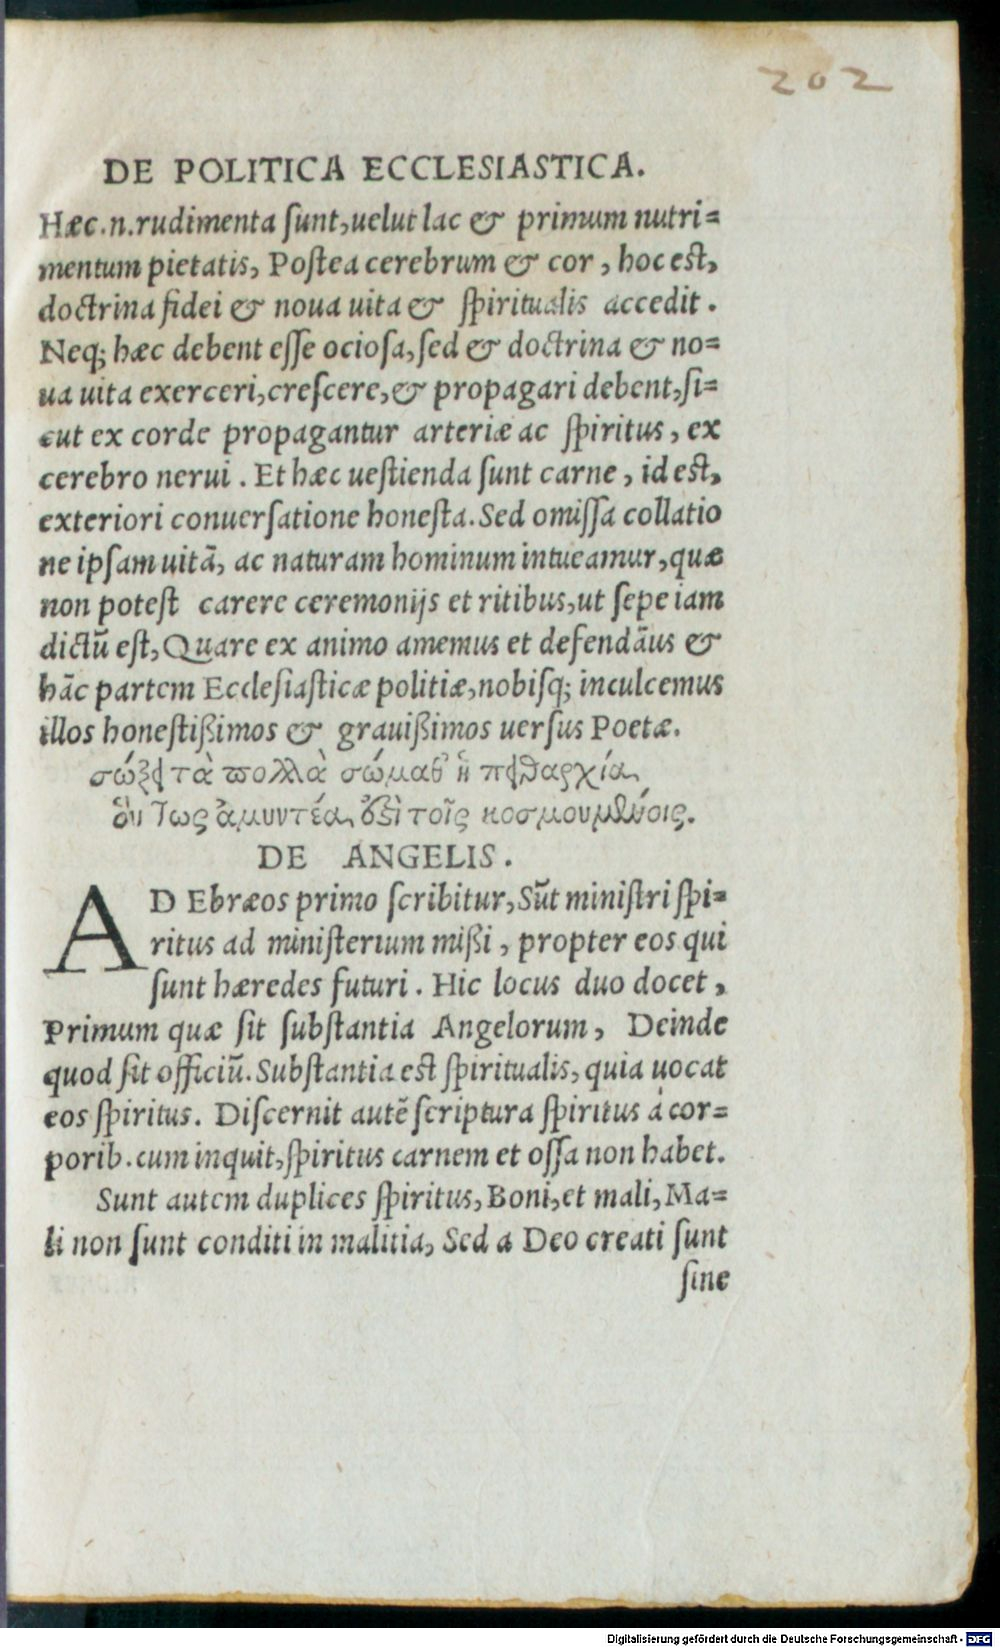 202
DE POLITICA ECCLESIASTICA.
Hæc.n.rudimenta ſunt,uelut lac & primum nutri=
mentum pietatis, Poſtea cerebrum & cor , hoc est,
doctrina fidei & noua uita & ſpiritualis accedit .
Neq; hæc debent eſſe ocioſa,ſed & doctrina & no=
ua uita exerceri,creſcere,& propagari debent,ſi=
cut ex corde propagantur arteriæ ac ſpiritus , ex
cerebro nerui . Et hæc ueſtienda ſunt carne , id est,
exteriori conuerſatione honeſta. Sed omiſſa collatio
ne ipſam uitā, ac naturam hominum intueamur,quæ
non poteſt carere ceremonijs et ritibus,ut ſepe iam
dictū eſt, Quare ex animo amemus et defendāus &
hāc partem Eccleſiaſticæ politiæ,nobiſq; inculcemus
illos honeſtißimos & grauißimos uerſus Poetæ.
σώζει τὰ πολλὰ σώμαθ' ἡ πειθαρχία,
οὕτως ἀμυντέα ἐστὶ τοῖς κοσμουμένοις.
DE ANGELIS .
AD Ebræos primo ſcribitur, Sūt miniſtri ſpi=
ritus ad miniſterium mißi , propter eos qui
ſunt hæredes futuri . Hic locus duo docet ,
Primum quæ ſit ſubſtantia Angelorum , Deinde
quod ſit officiū. Subſtantia est ſpiritualis, quia uocat
eos ſpiritus. Diſcernit autē ſcriptura ſpiritus à cor=
porib. cum inquit,ſpiritus carnem et oſſa non habet.
Sunt autem duplices ſpiritus, Boni,et mali, Ma=
li non ſunt conditi in malitia, Sed a Deo creati ſunt
ſine
Digitalisierung gefördert durch die Deutsche Forschungsgemeinschaft - DFG